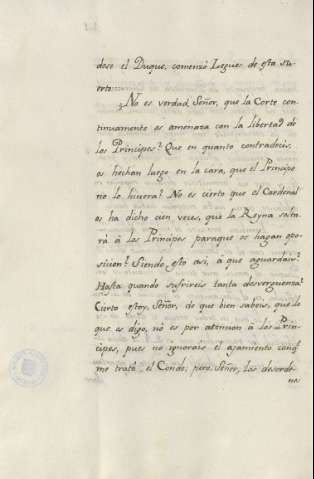 dose el Duque, comenzó Legues de esta su-
erte:
¿No es verdad, Señor, que la Corte con-
tinuamente os amenaza con la libertad de
los Principes? Que en quanto contradecis,
os hechan luego en la cara, que el Principe
no lo hiciera? No es cierto que el Cardenal
os ha dicho cien veces, que la Reyna solta-
rá à los Principes paraque os hagan opo-
sicion? Siendo esto asi, à que aguardais?
Hasta quando sufrireis tanta desverguenza?
Cierto estoy, Señor, de que bien sabeis, que lo
que os digo, no es por atencion à los Prin-
cipes, pues no ignorais el ajamiento conq.
me trató el Conde; pero, Señor, los desorde-
nes